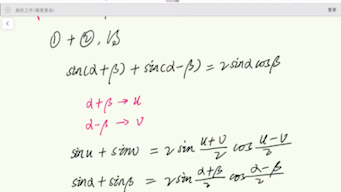 ① + ②, 得
sin(α+β) + sin(α-β) = 2 sinα cosβ
α+β → u
α-β → v
sin u + sin v = 2 sin \frac{u+v}{2} cos \frac{u-v}{2}
sinα + sinβ = 2 sin \frac{α+β}{2} cos \frac{α-β}{2}